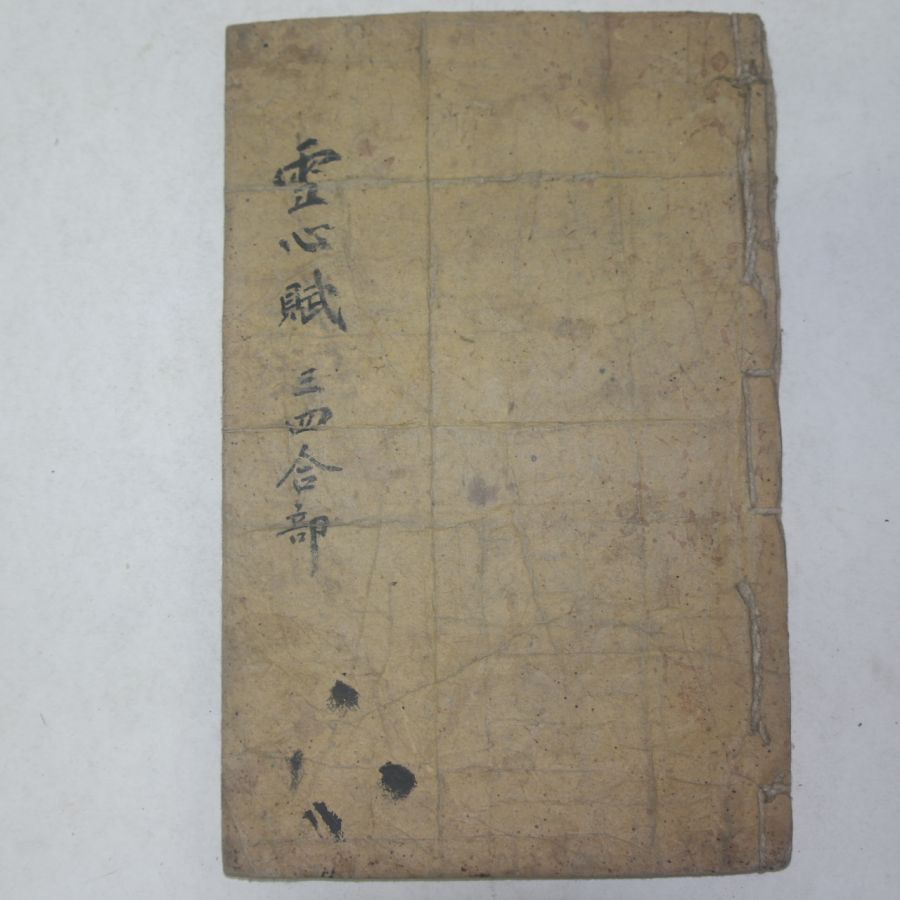 霊心賦 三四合部